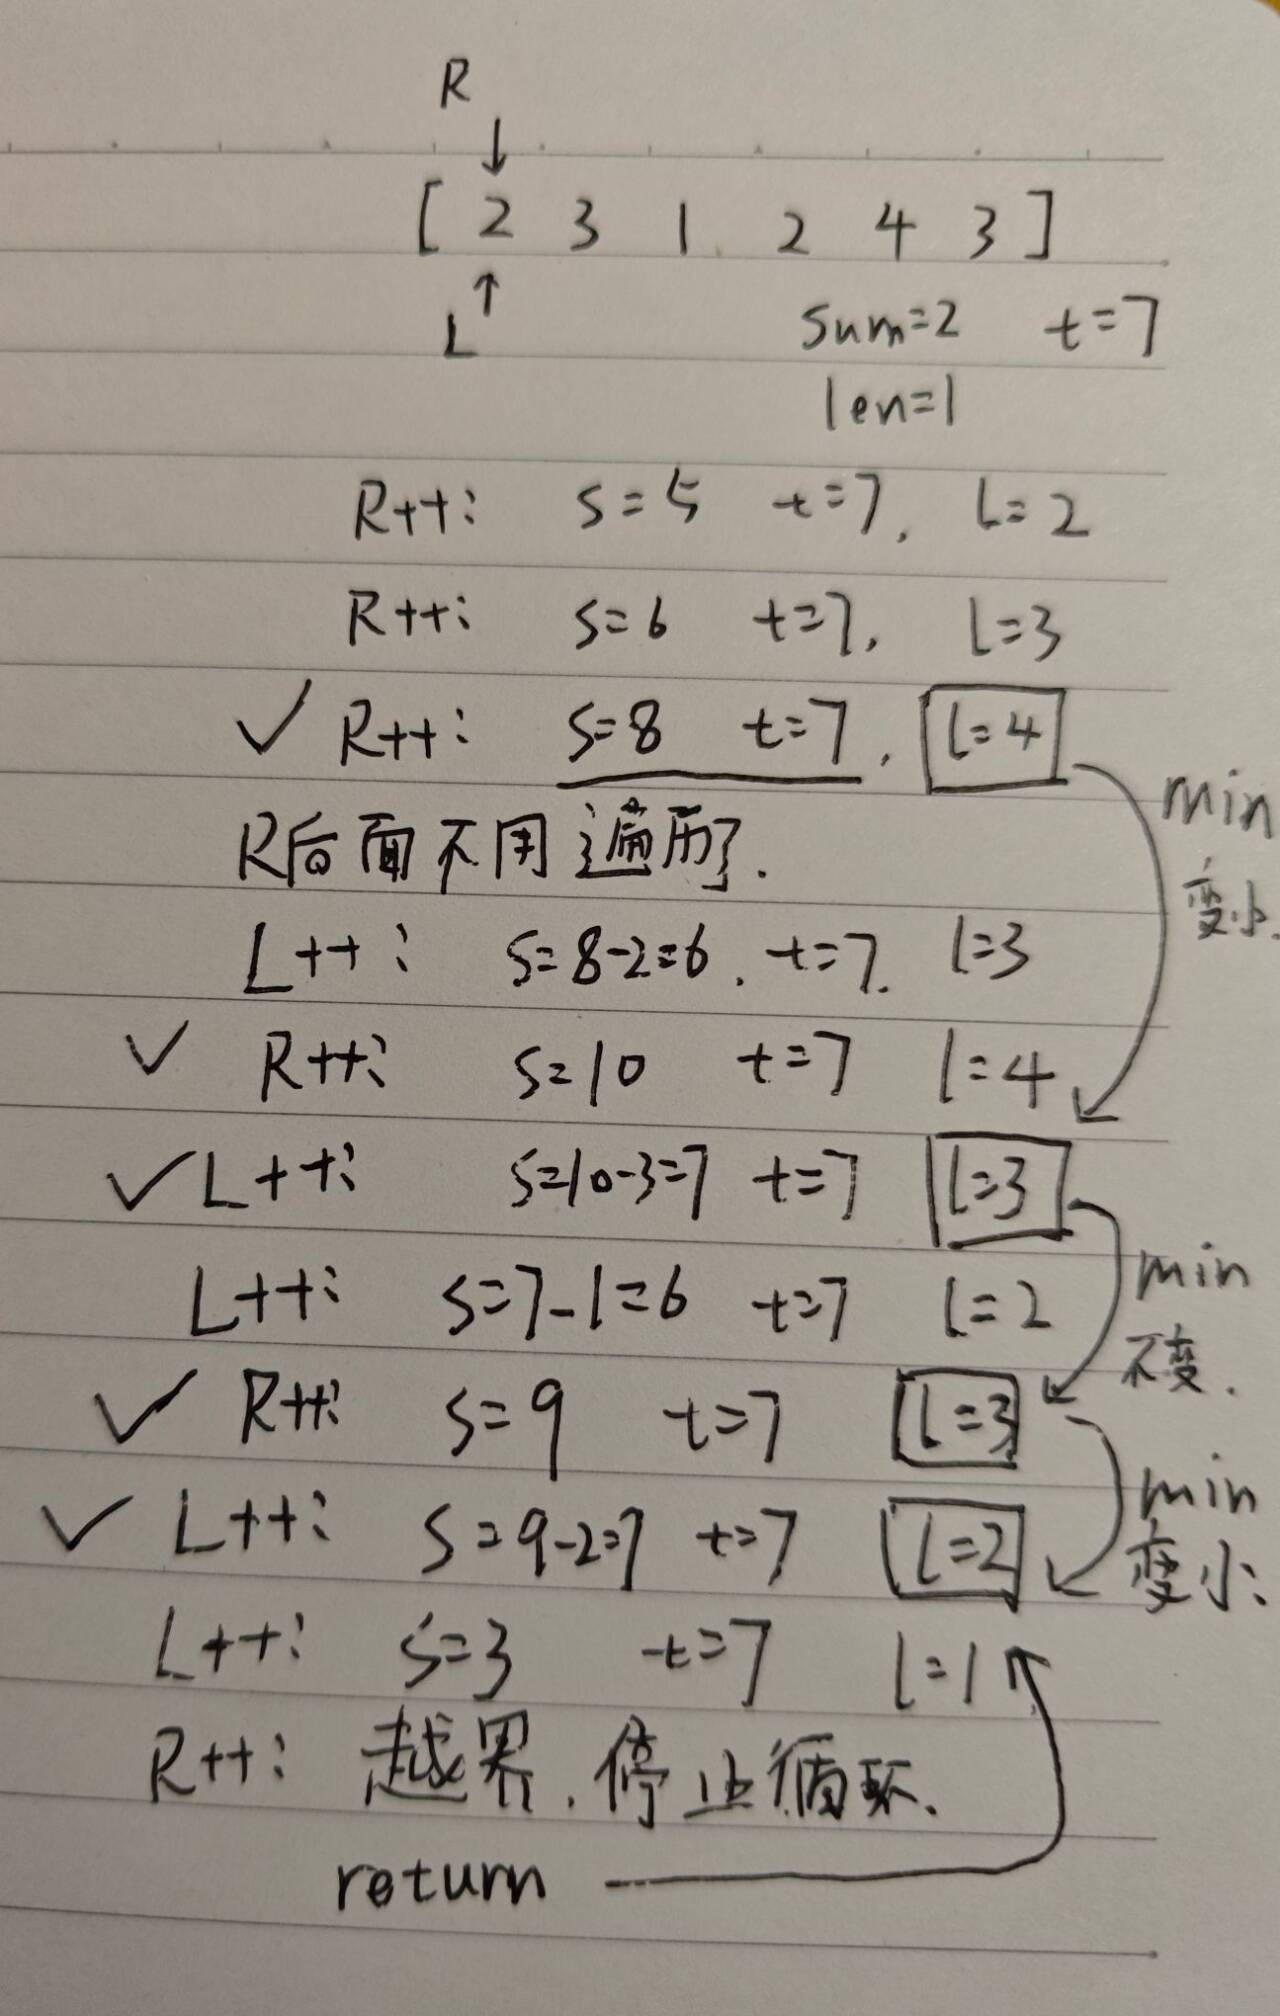 R
↓
[ 2 3 1 2 4 3 ]
↑
L
sum=2 t=7
len=1
R++: s=5 t=7, l=2
R++: s=6 t=7, l=3
✓ R++: s=8 t=7, l=4
min
变小.
R后面不用遍历了.
L++: s=8-2=6. t=7. l=3
✓ R++: s=10 t=7 l=4
✓ L++: s=10-3=7 t=7 l=3
min
不变.
L++: s=7-1=6 t=7 l=2
✓ R++: s=9 t=7 l=3
min
变小:
✓ L++: s=9-2=7 t=7 l=2
L++: s=3 t=7 l=1
R++: 越界. 停止循环.
return